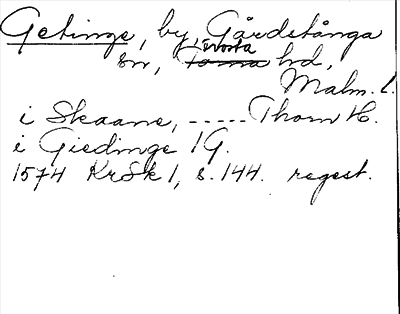 Getinge, by, Gårdstånga
sn, Frosta hd,
Malm. l.
i Skaane, ----- Thorn H.
i Giedinge 1 G.
1574 KrSk 1, s. 144. regest.